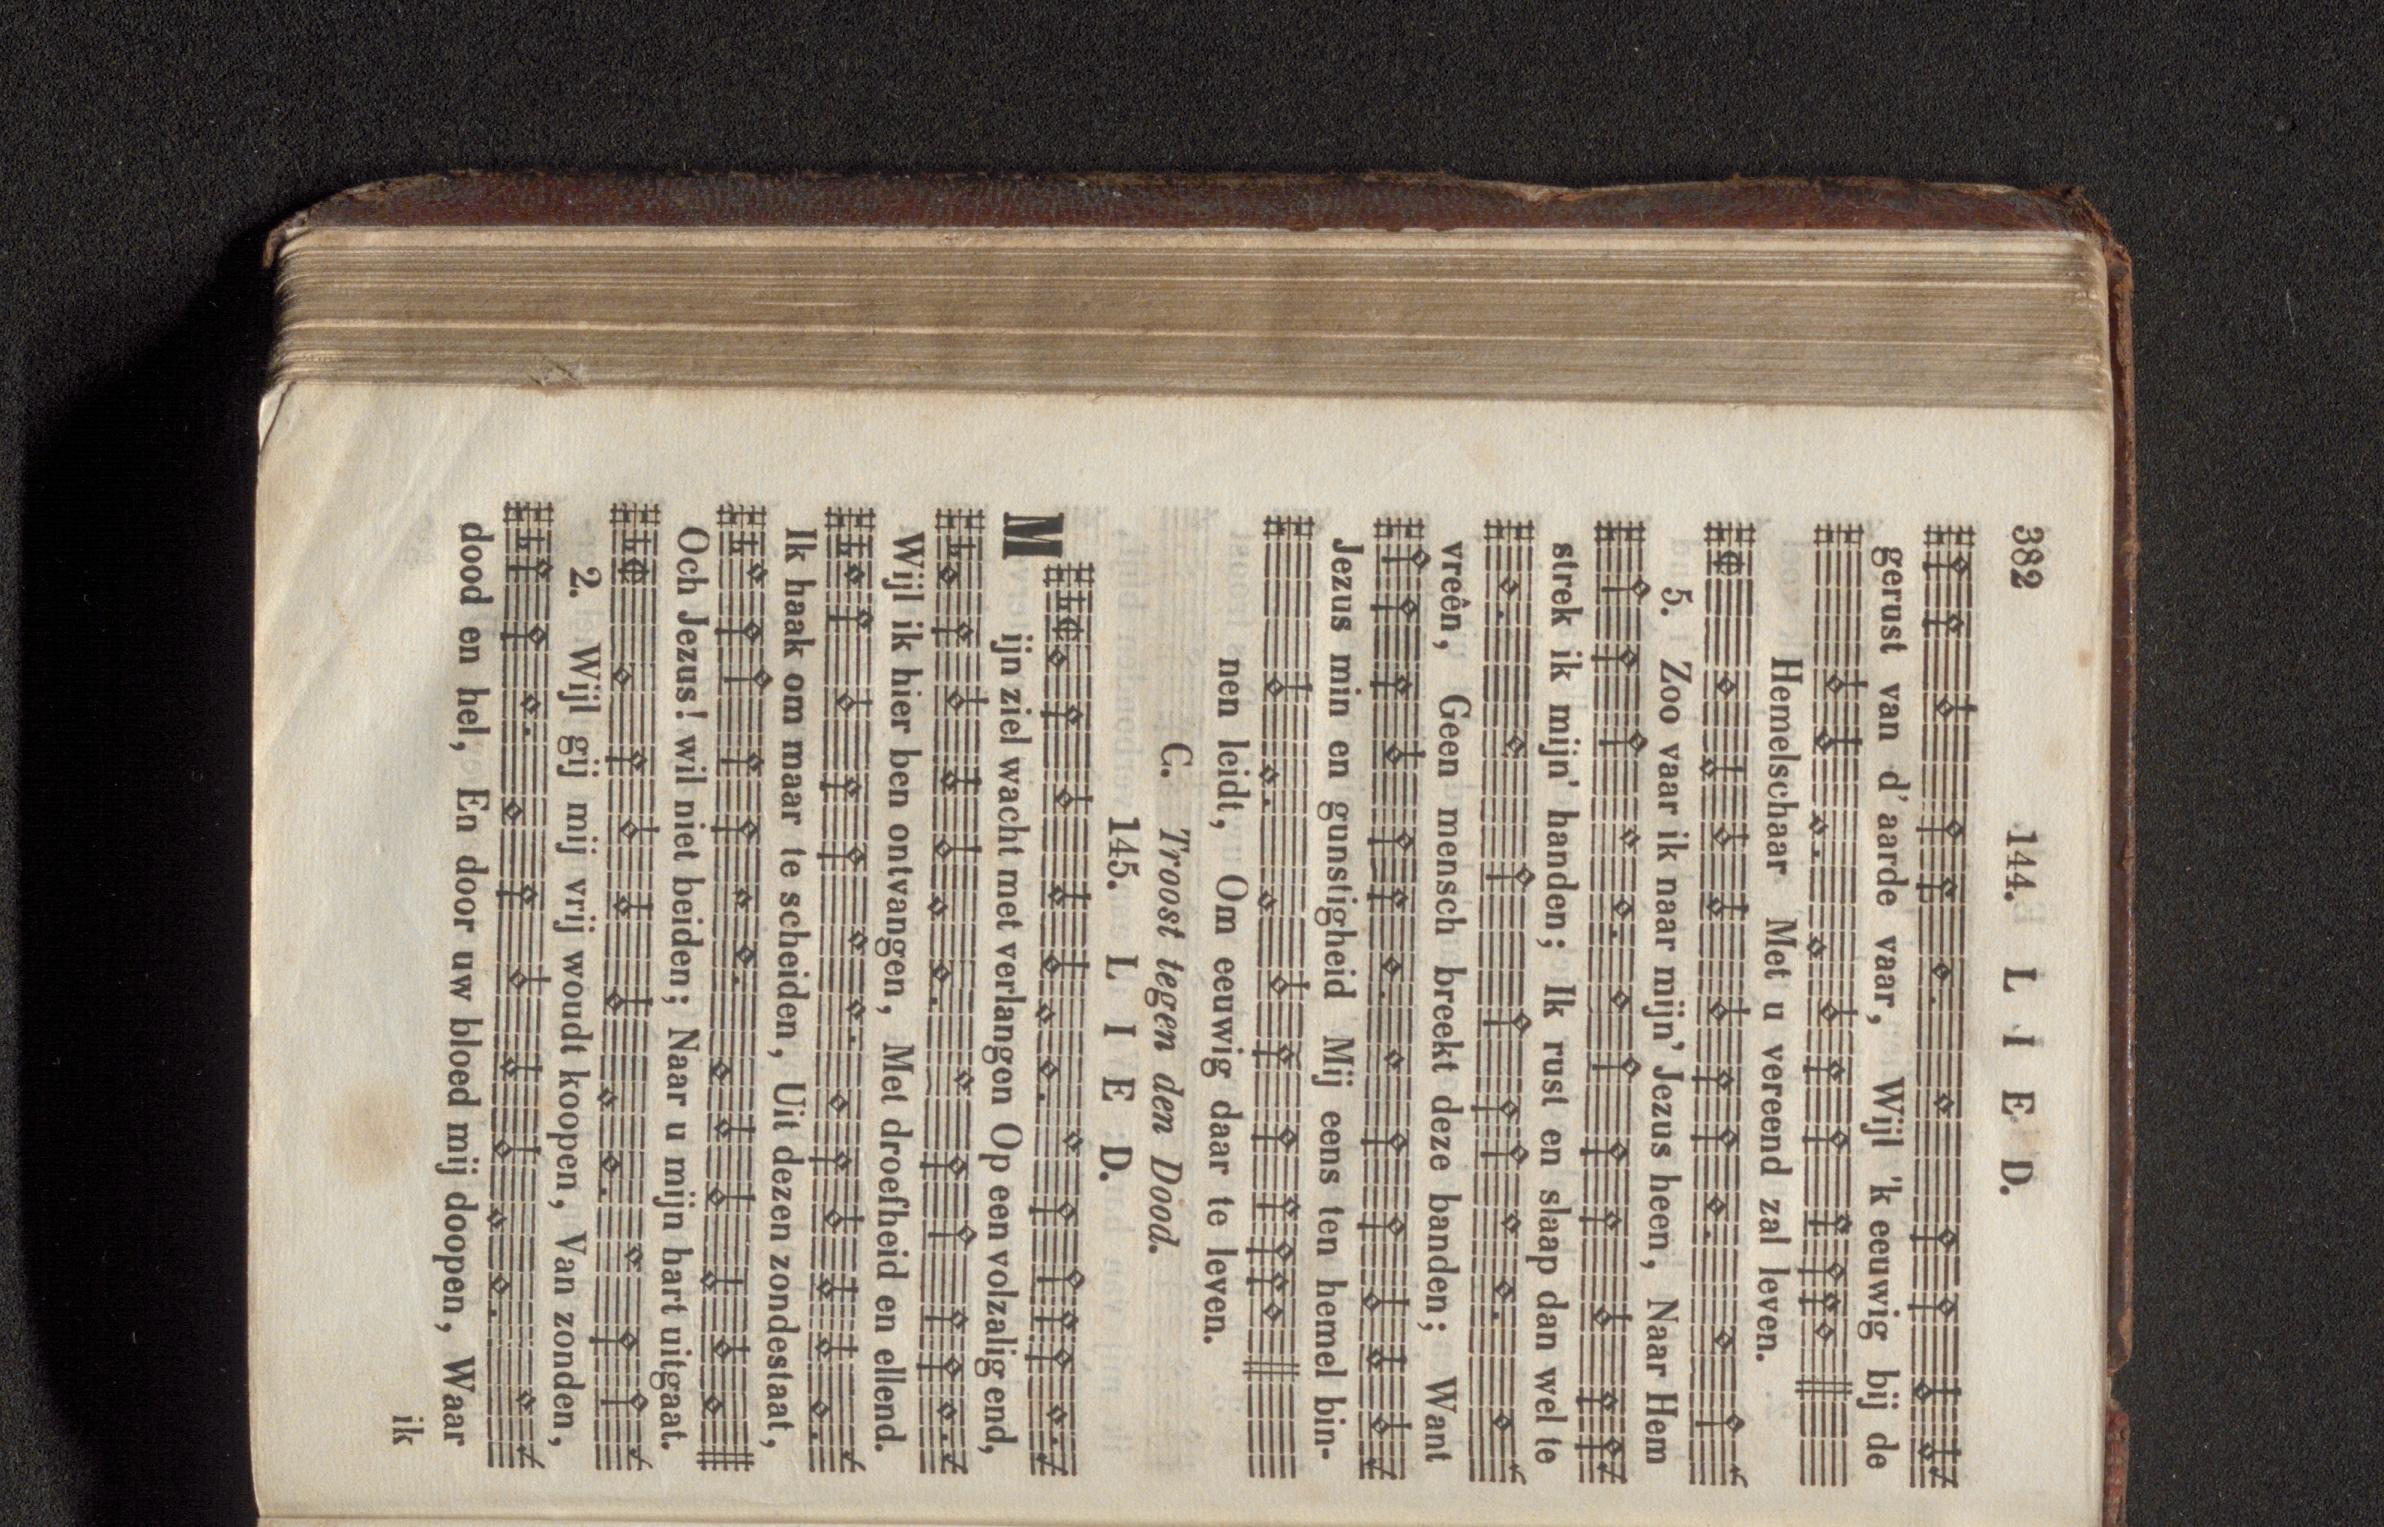 382 144. L I E D.
gerust van d'aarde vaar, Wijl 'k eeuwig bij de
Hemelschaar Met u vereend zal leven.
5. Zoo vaar ik naar mijn' Jezus heen, Naar Hem
strek ik mijn' handen; Ik rust en slaap dan wel te
vreên, Geen mensch breekt deze banden; Want
Jezus min en gunstigheid Mij eens ten hemel bin-
nen leidt, Om eeuwig daar te leven.
C. Troost tegen den Dood.
145. L I E D.
Mijn ziel wacht met verlangen Op een volzalig end,
Wijl ik hier ben ontvangen, Met droefheid en ellend.
Ik haak om maar te scheiden, Uit dezen zondestaat,
Och Jezus! wil niet beiden; Naar u mijn hart uitgaat.
2. Wijl gij mij vrij woudt koopen, Van zonden,
dood en hel, En door uw bloed mij doopen, Waar
ik